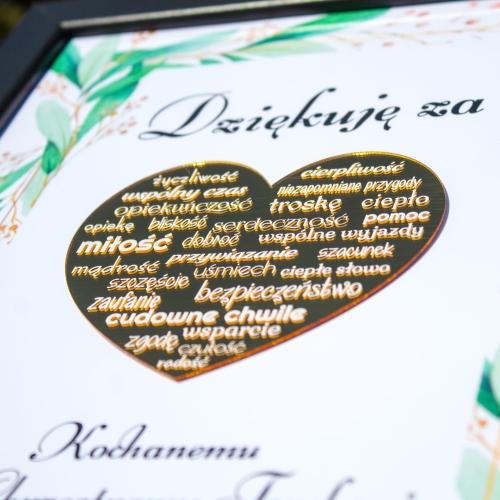 Dziękuję za
życzliwość cierpliwość
wspólny czas niezapomniane przygody
opiekuńczość troskę ciepło
opiekę bliskość serdeczność pomoc
miłość dobroć wspólne wyjazdy
przywiązanie szacunek
mądrość uśmiech ciepłe słowo
szczęście
zaufanie bezpieczeństwo
cudowne chwile
wsparcie
zgodę czułość
radość
Kochanemu